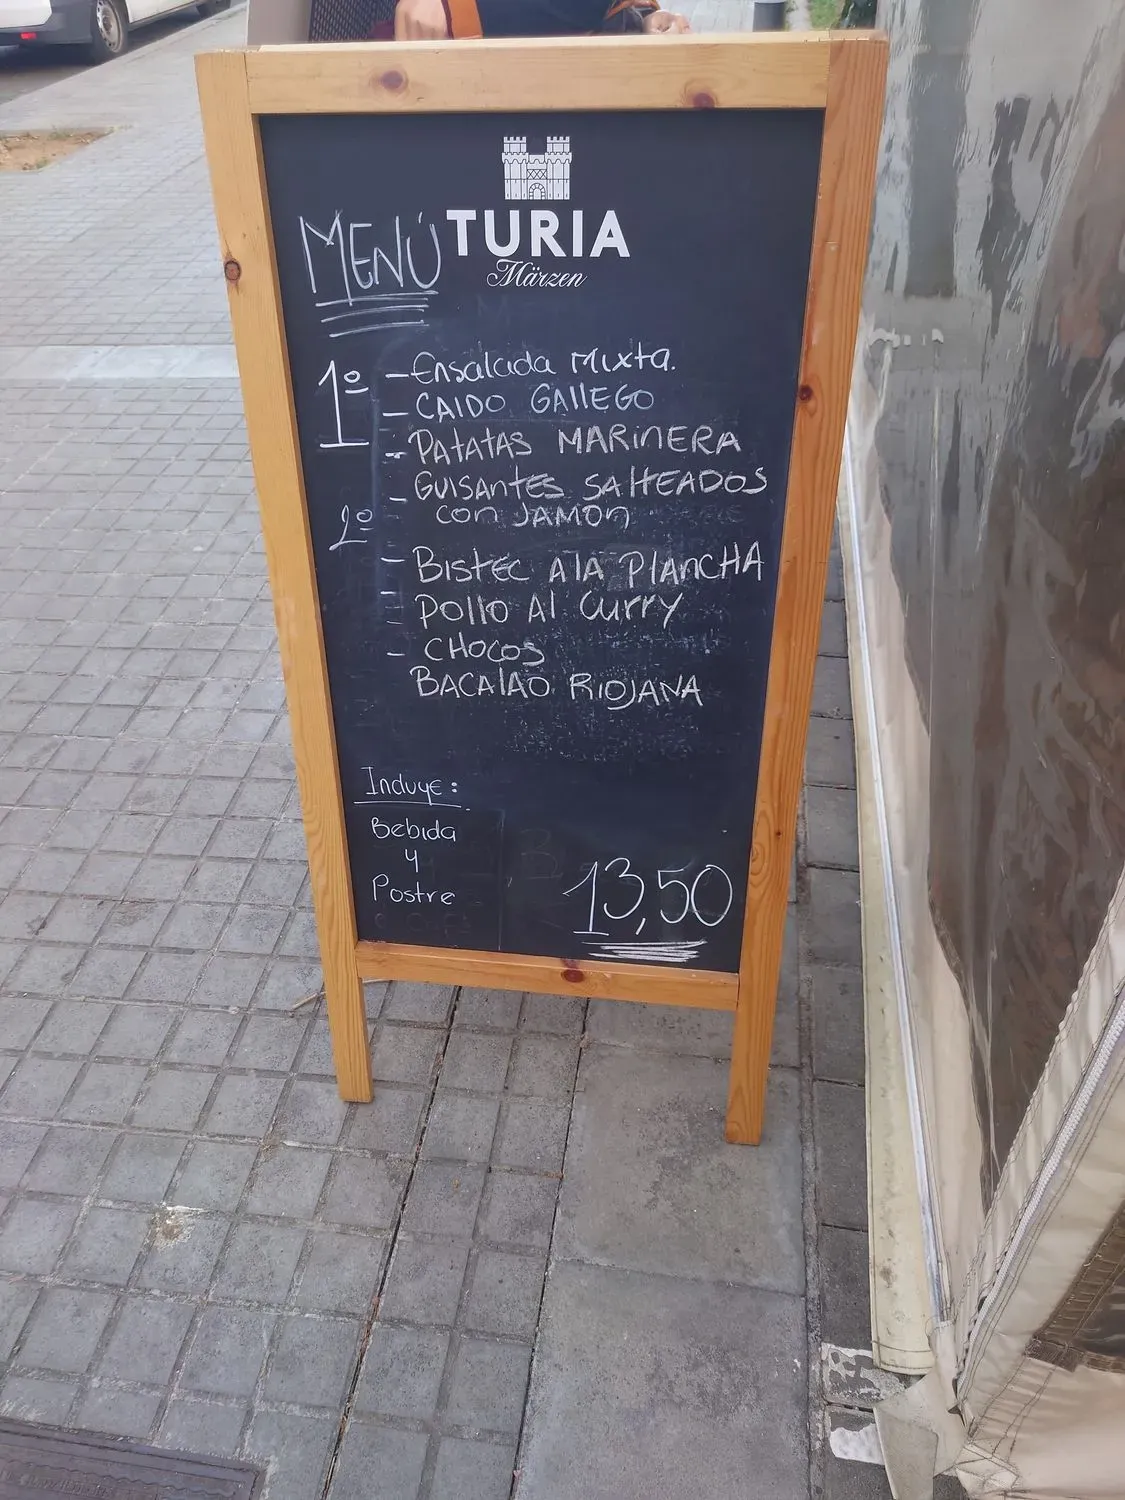 TURIA
Märzen
MENÚ
1º
- Ensalada Mixta.
- CALDO GALLEGO
- PATATAS MARINERA
- GUISANTES SALTEADOS
con JAMON
2º
- BISTEC A LA PLANCHA
- POLLO Al Curry
- CHOCOS
BACALAO RIOJANA
Incluye:
Bebida
y
Postre
13,50